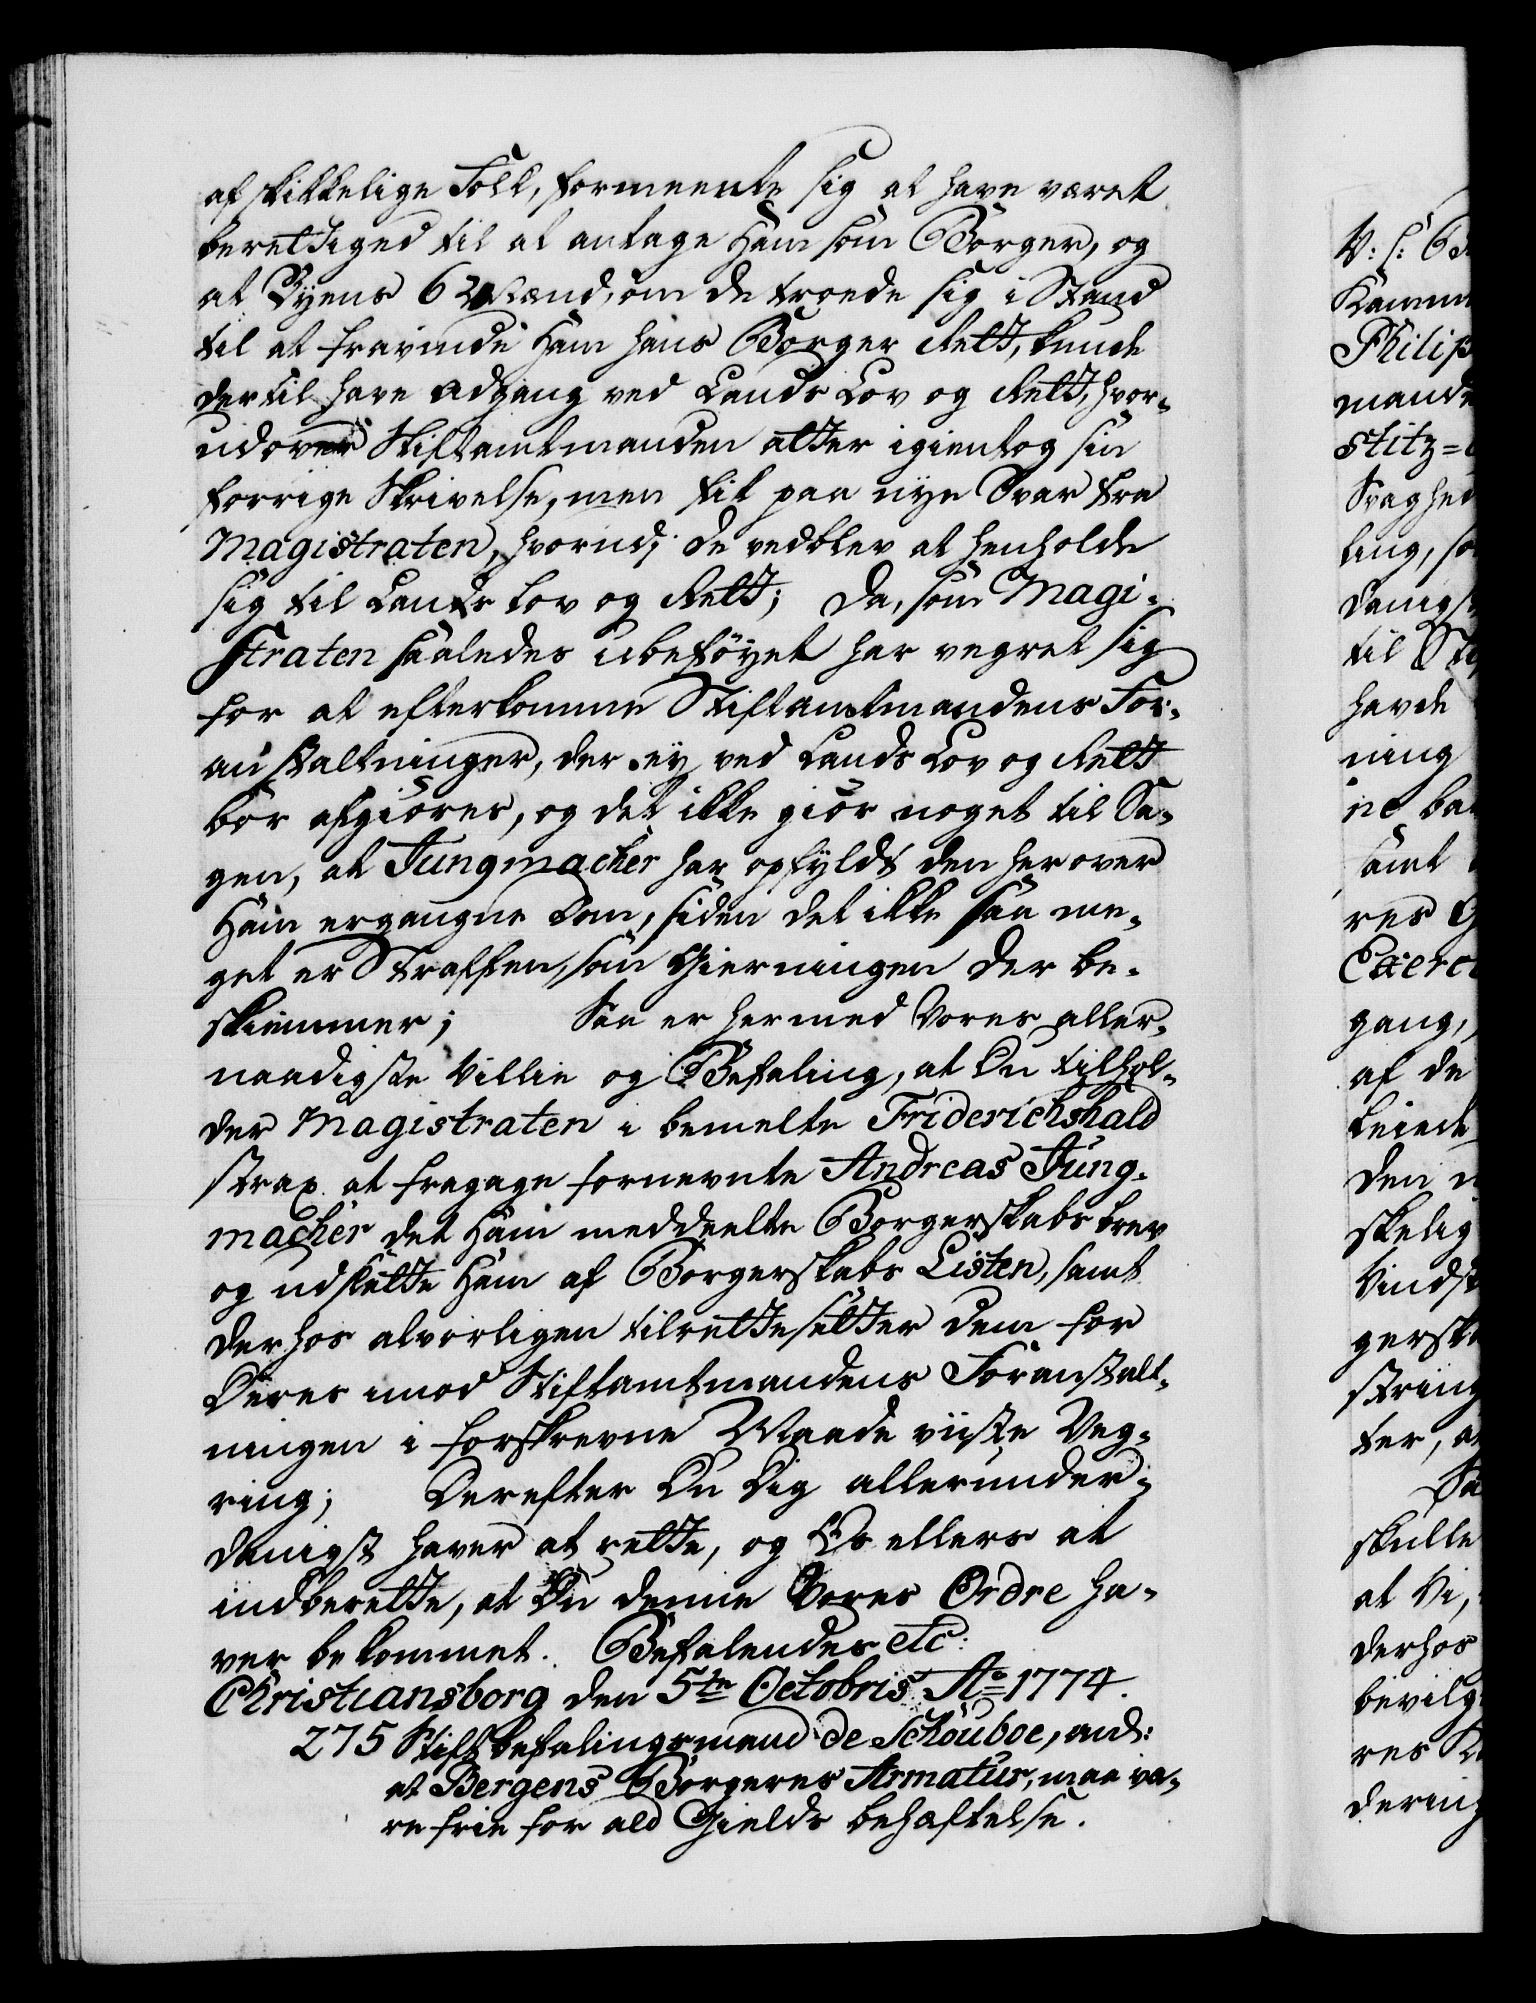 af skikkelige Folk, formeente sig at have været
berettiged til at antage Ham som Borger, og
at Byens 6 Mænd, om de troede sig i Stand
til at fravinde Ham hans Borger Rett, kunde
dertil have Adgang ved Lands Lov og Rett, hvor-
udover Stiftamtmanden atter igientog sin
forrige Skrivelse, men fik paa nye Svar fra
Magistraten, hvorudj de vedblev at henholde
sig til Lands Lov og Rett; Da, som Magi-
straten saaledes ubeføyet har vegret sig
for at efterkomme Stiftamtmandens For-
anstaltninger, der ey ved Lands Lov og Rett
bør afgiøres, og det ikke giør noget til Sa-
gen, at Jungmacher har opfyldt den herover
Ham ergangne Dom, siden det ikke saa me-
get er Straffen, som Gierningen der be-
skiemmer; Saa er hermed Vores aller-
naadigste Villie og Befaling, at Du tilhol-
der Magistraten i bemelte Friderichshald
strax at fragage fornevnte Andreas Jung-
macher det Ham meddeelte Borgerskabs brev
og udslette Ham af Borgerskabs Listen, samt
derhos alvorligen tilrettesetter dem for
Deres imod Stiftamtmandens Foranstalt-
ningen i forskrevne Maade viiste Veg-
ring; Derefter Du Dig allerunder-
danigst haver at rette, og Os ellers at
indberette, at Du denne Vores Ordre ha-
ver bekommet. Befalendes etc:
Christiansborg den 5te Octobris Ao 1774.
275 Stiftbefalingsmand de Schouboe, anl:
at Bergens Borgeres Armatur, maa væ-
re frie for ald Gields behæftelse.
V: s:
Philip
mande
stitz=
ting, so
til
havde
ning
samt
res
gang,
af de
den
skelig
ter,
skulle
at Vi,
derhos
res
dering